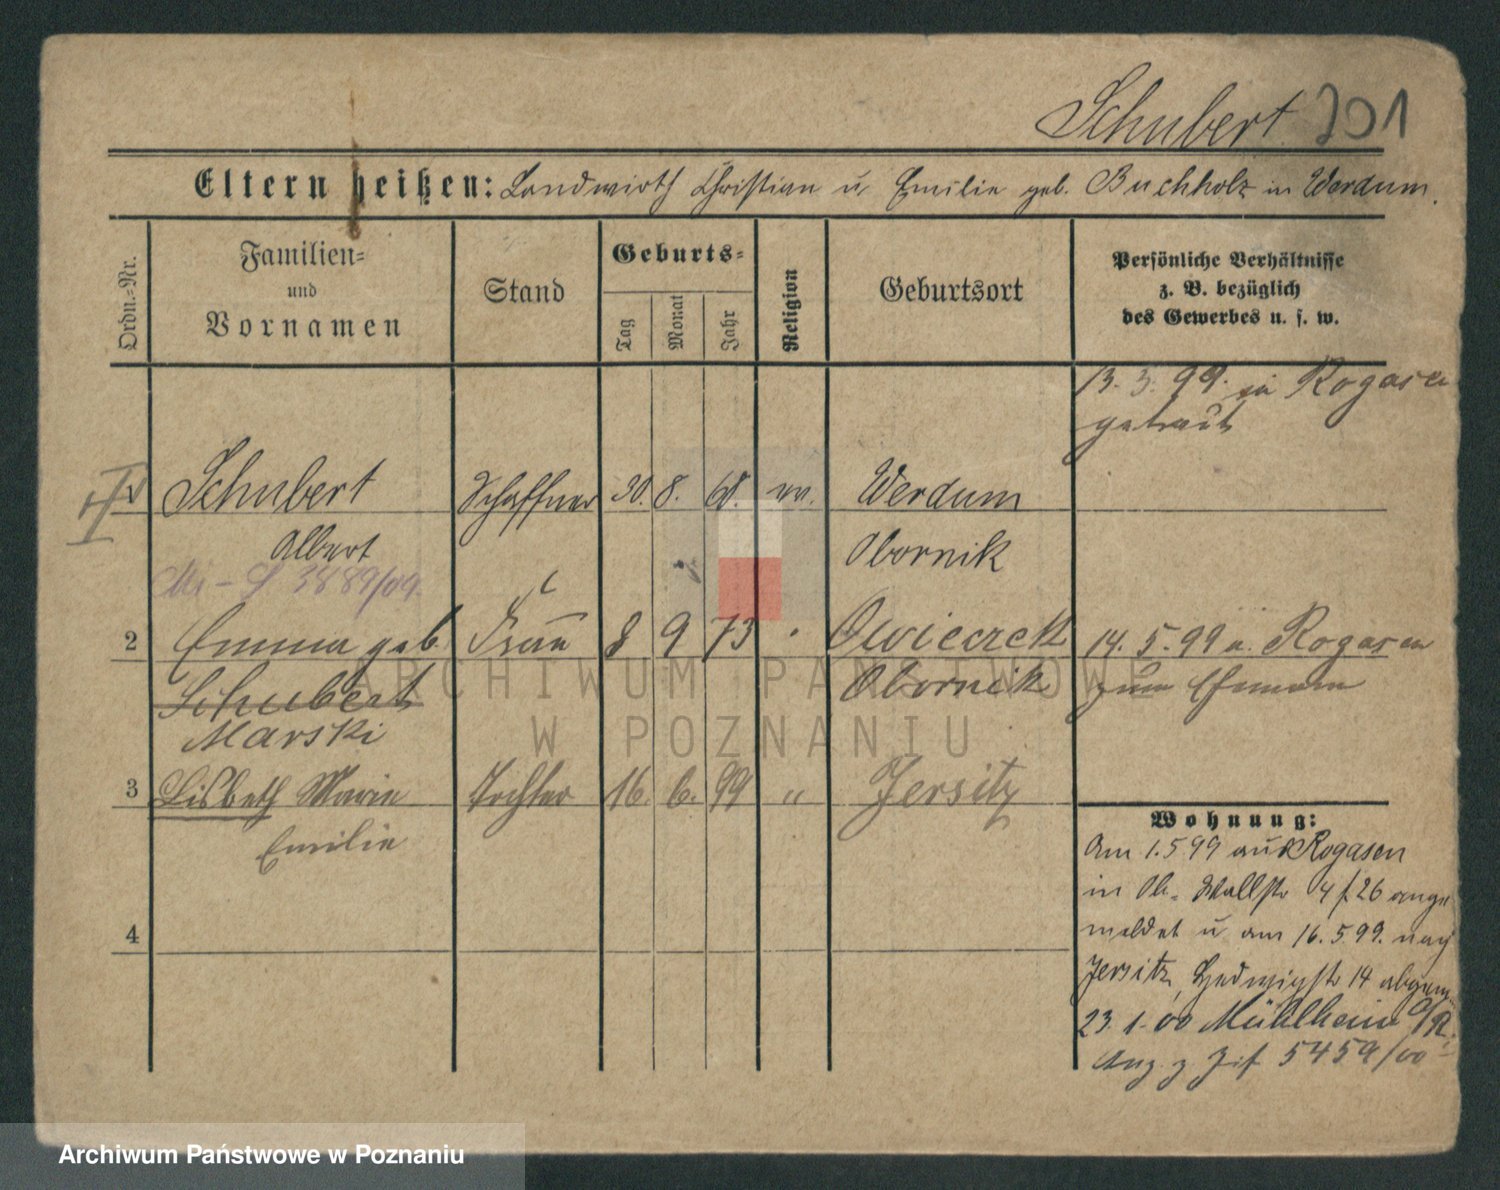 Schubert 201
Eltern heißen: Landwirth Christian u Emilie geb. Buchholz in Werdum.
Ordn.-Nr.
Familien-
und
Vornamen
Stand
Geburts-
Tag
Monat
Jahr
Religion
Geburtsort
Persönliche Verhältnisse
z. B. bezüglich
des Gewerbes u. s. w.
13. 3. 99. in Rogasen
getraut
Schubert Schaffner 30. 8. 68. ev. Werdum
Albert Obornik
3889/09.
2 Emma geb. Frau 8 9 73 Owieczek 14. 5. 99 a. Rogasen
Schubert Obornik zum Ehemann
Marski
3 Lisbeth Marie Tochter 16. 6. 99 " Jersitz
Emilie
Wohnung:
Am 1.5 99 aus Rogasen
in Wallstr 4 f 26 ange
meldet u am 16. 5. 99. nach
Jersitz, Hedwigstr 14 abgem.
23. 1. 00 Mühlheim a/R.
5459/00
4
ARCHIWUM PAŃSTWOWE
W POZNANIU
Archiwum Państwowe w Poznaniu